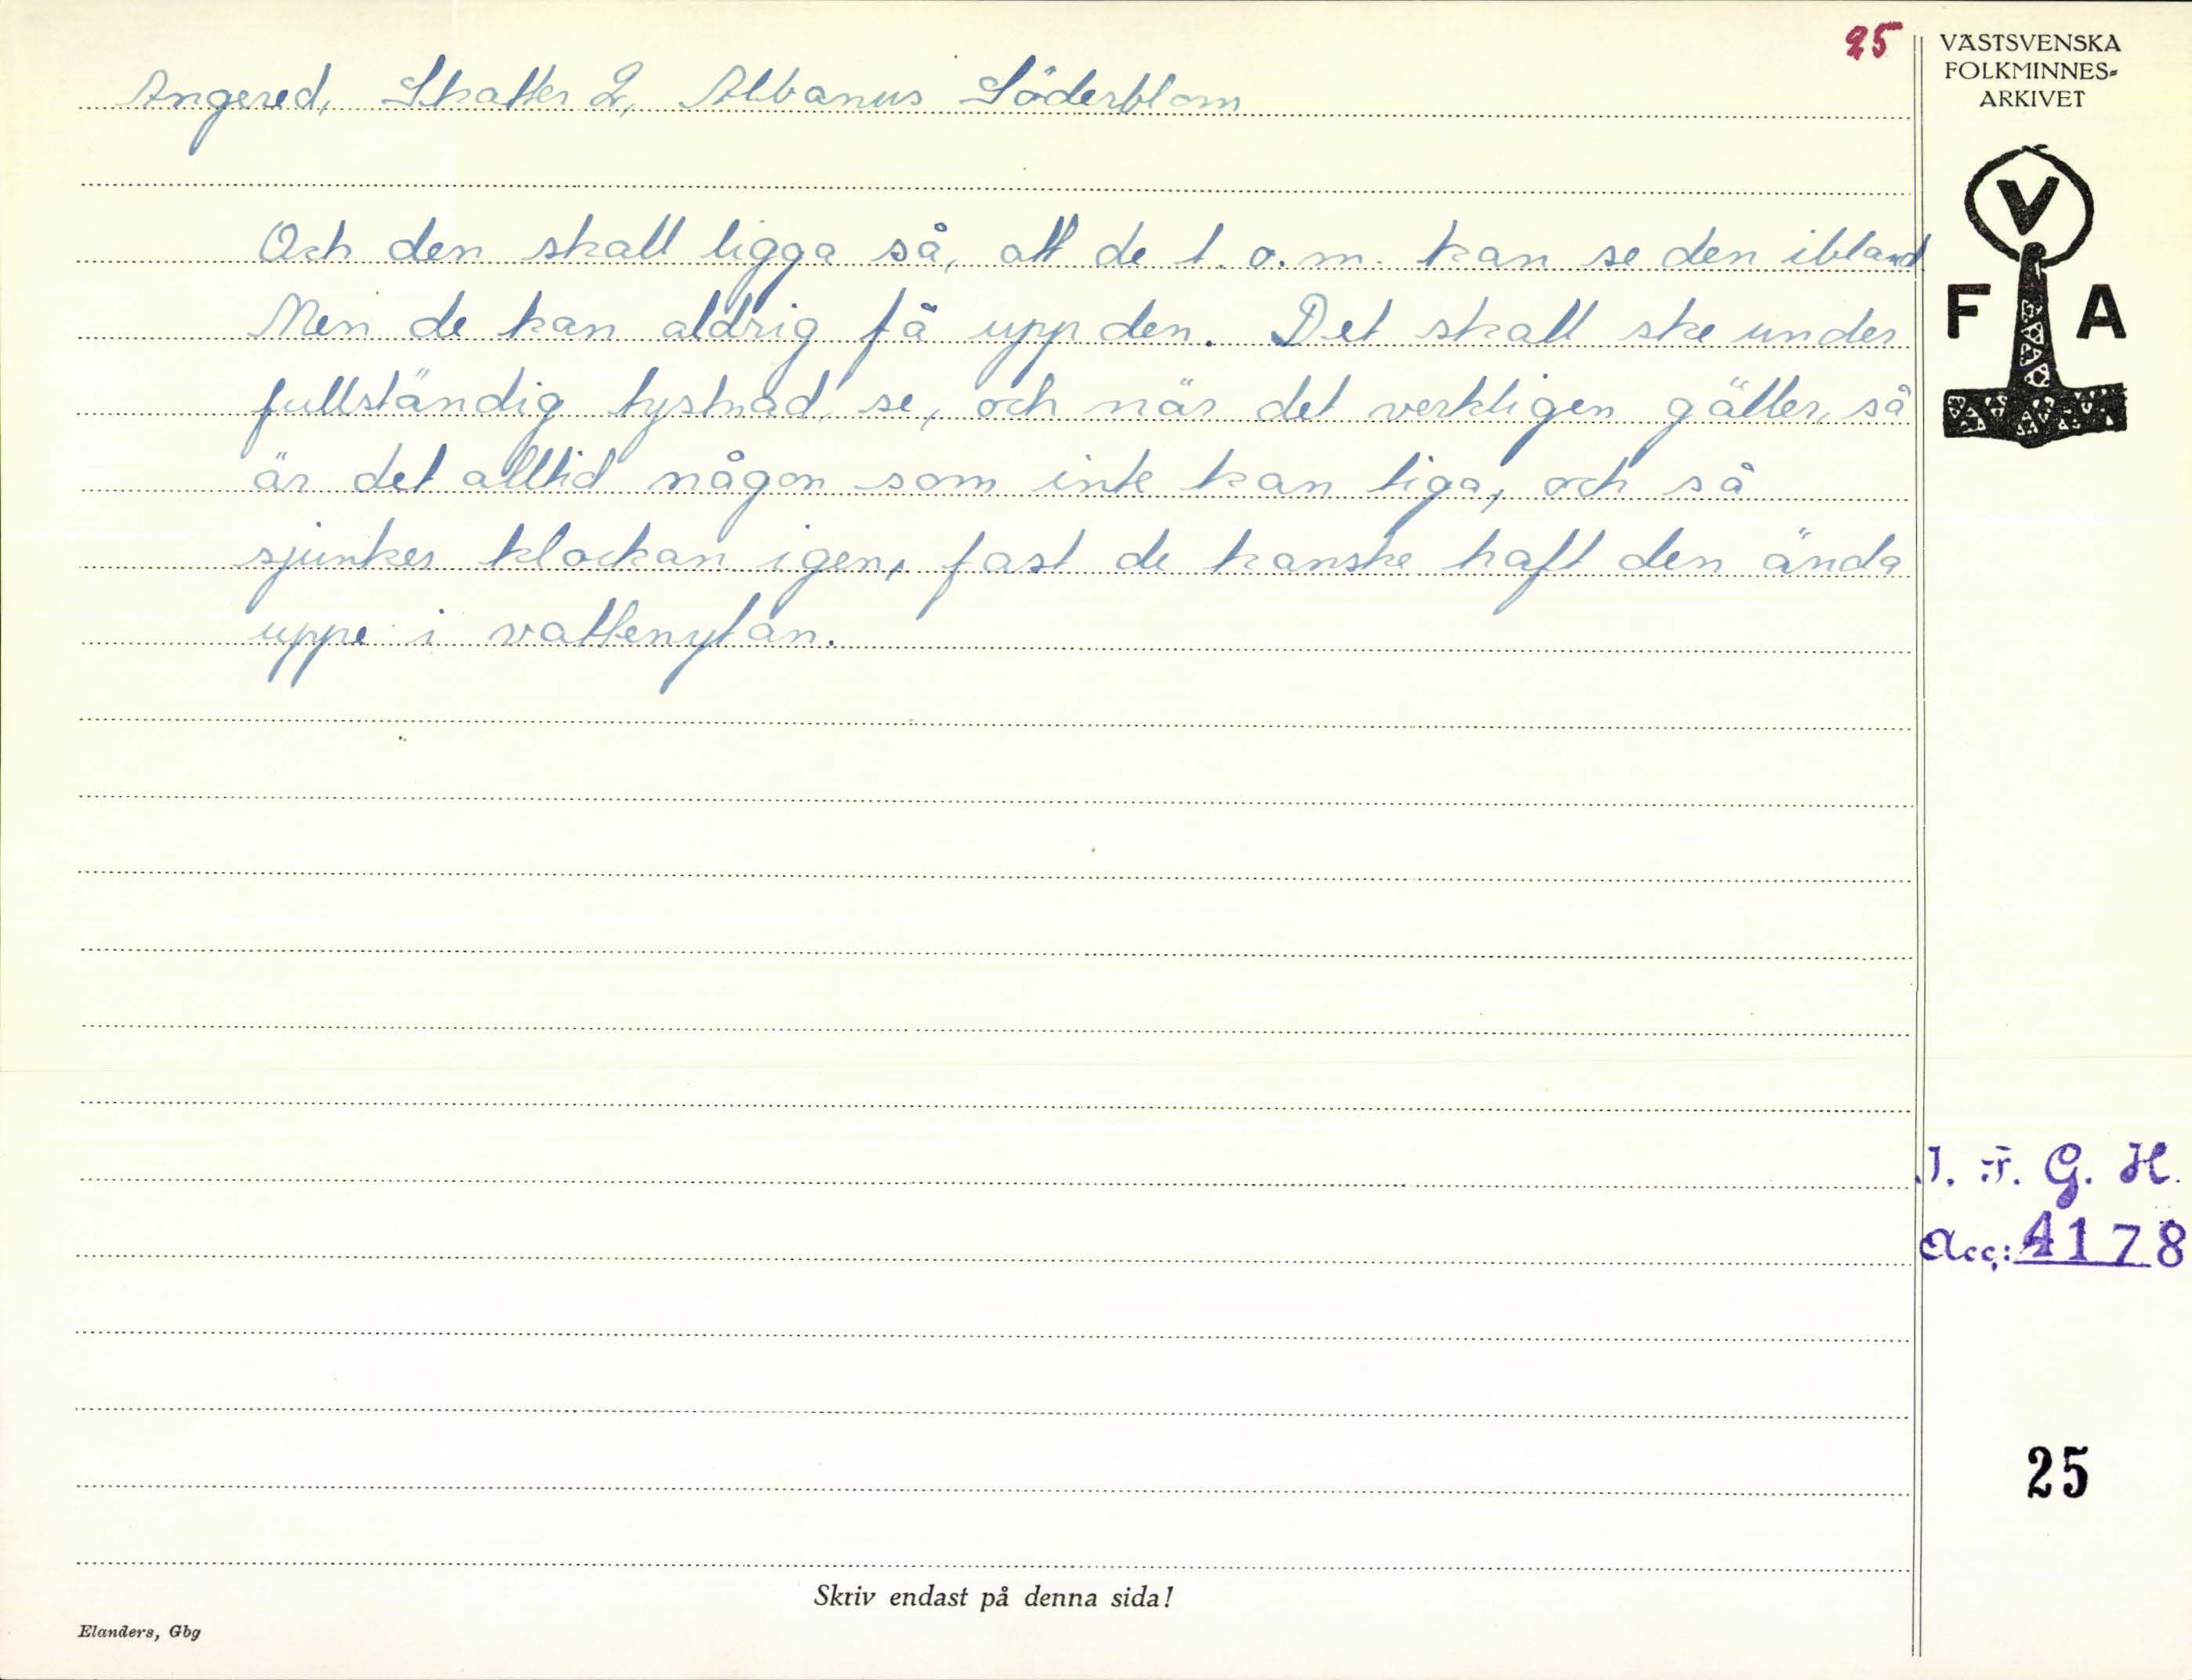 25
Angered, Skatter 2, Albanus Söderblom
Och den skall ligga så, att de t.o.m. kan se den ibland
Men de kan aldrig få upp den. Det skall ske under
fullständig tystnad, se, och när det verkligen gäller, så
är det alltid någon som inte kan tiga, och så
sjunker klockan igen, fast de kanske haft den ända
uppe i vattenytan.
VÄSTSVENSKA
FOLKMINNES-
ARKIVET
V
F A
I. F. G. H.
Acc: 4178
25
Skriv endast på denna sida!
Elanders, Gbg